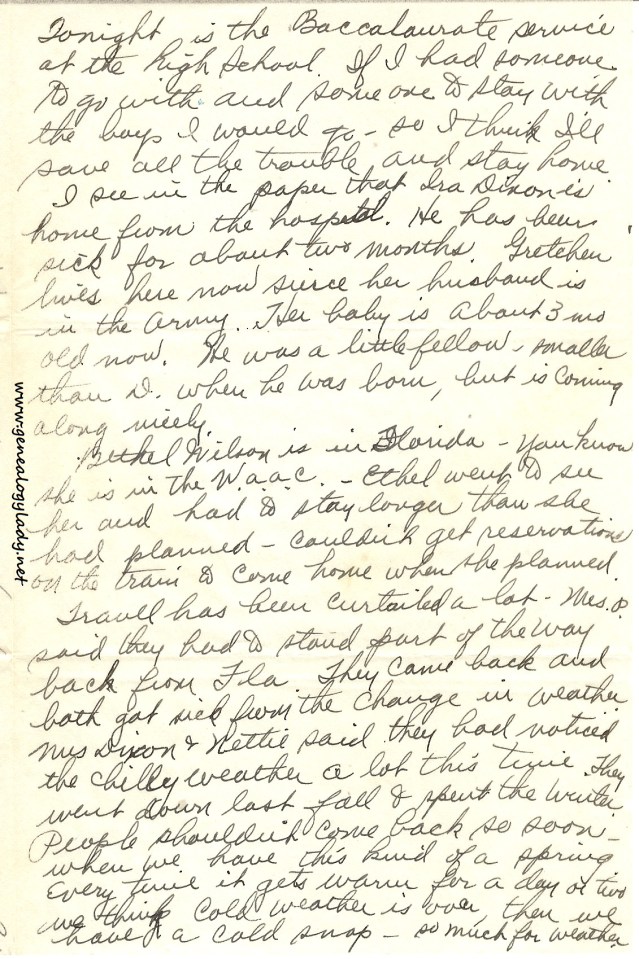 Tonight is the Baccalaurate service
at the High School. If I had someone
to go with and someone to stay with
the boys I would go - so I think I'll
save all the trouble and stay home
I see in the paper that Ira Dixon is
home from the hospital. He has been
sick for about two months. Gretchen
lives here now since her husband is
in the Army. Her baby is about 3 mo
old now. He was a little fellow - smaller
than D. when he was born, but is coming
along nicely.
Bethel Wilson is in Florida - You know
she is in the W.a.a.C. - Ethel went to see
her and had to stay longer than she
had planned - couldn't get reservations
on the train to come home when she planned.
Travel has been curtailed a lot - Mrs. D.
said they had to stand part of the way
back from Fla. They came back and
both got sick from the change in weather
Mrs Dixon & Nettie said they had noticed
the chilly weather a lot this time. They
went down last fall & spent the winter
People shouldn't come back so soon -
when we have this kind of a spring
Every time it gets warm for a day or two
we think cold weather is over, then we
have a cold snap - so much for weather
www.genealogylady.net